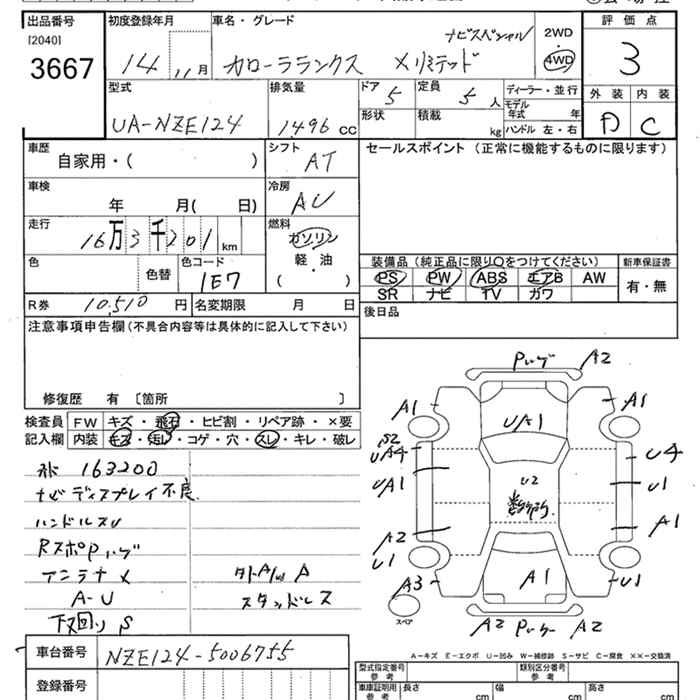 出品番号 初度登録年月 車名・グレード 評価点
[2040] ナビスペシャル 2WD
3667 14 11月 カローラランクス Xリミテッド 4WD 3
型式 排気量 ドア 5 定員 5人 ディーラー・並行 外装 内装
モデル年式 年
UA-NZE124 1496 cc 形状 積載 kg ハンドル 左・右 D C
車歴 シフト セールスポイント (正常に機能するものに限ります)
自家用・( ) AT
車検 冷房
年 月( 日) AC
走行 燃料
16万3千201 km ガソリン
軽・油
色 色替 色コード ( ) 装備品 (純正品に限り○をつけてください) 新車保証書
1E7 PS PW ABS エアB AW 有・無
SR ナビ TV カワ
R券 10,510 円 名変期限 月 日 後日品
注意事項申告欄 (不具合内容等は具体的に記入して下さい)
修復歴 有 〔箇所 〕
検査員 FW キズ・飛石・ヒビ割・リペア跡・×要
記入欄 内装 キズ・汚レ・コゲ・穴・スレ・キレ・破レ
163200
ナビディスプレイ不良
ハンドルスレ
RスポPハゲ
アンテナ×
A-U
スタッドレス
下回りS
Pハゲ A2
A1 A1
U/A1
S2
UA4 U4
UA1 U2 U1
A2 A1
U1
A3 A1 U1
スペア
A2 A2
A-キズ E-エクボ U-凹み W-補修跡 S-サビ C-腐食 XX-交換済
車台番号 NZE124-5006755
型式指定番号 参考 類別区分番号 参考
登録番号 車庫証明用 参考 長さ cm 幅 cm 高さ cm